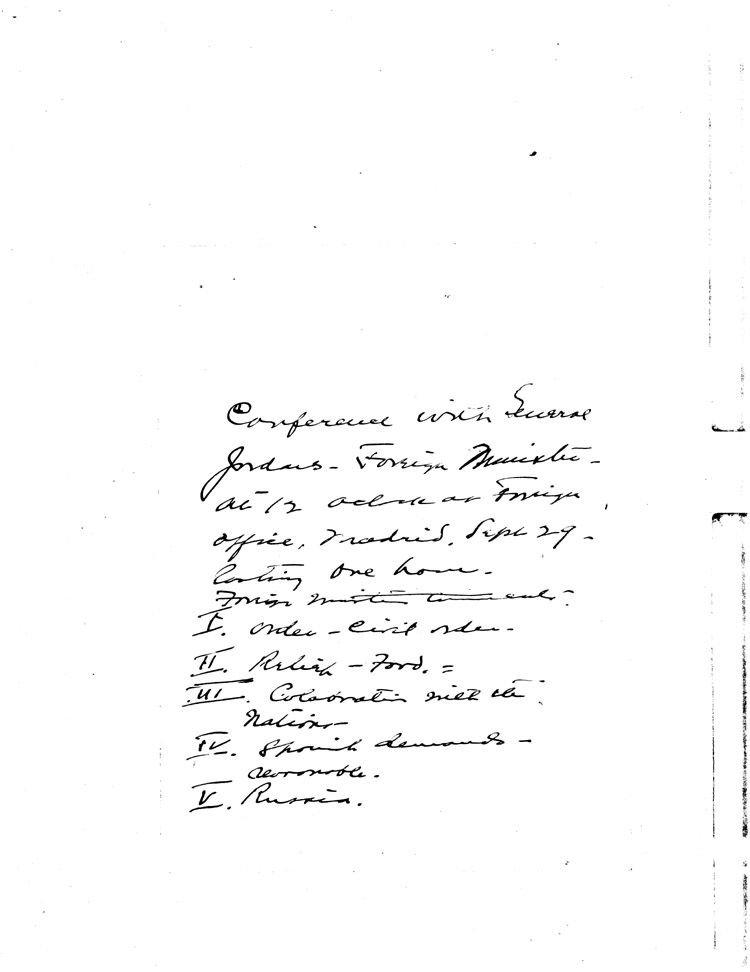 Conference with General
Jordans - Foreign Minister -
at 12 oclock at Foreign
office, Madrid, Sept 29 -
lasting one hour -
Foreign
I. Order - Civil order -
II. Relief - Food. =
III. Colaboration with the
Nations -
IV. Spanish demands -
reasonable.
V. Russia.